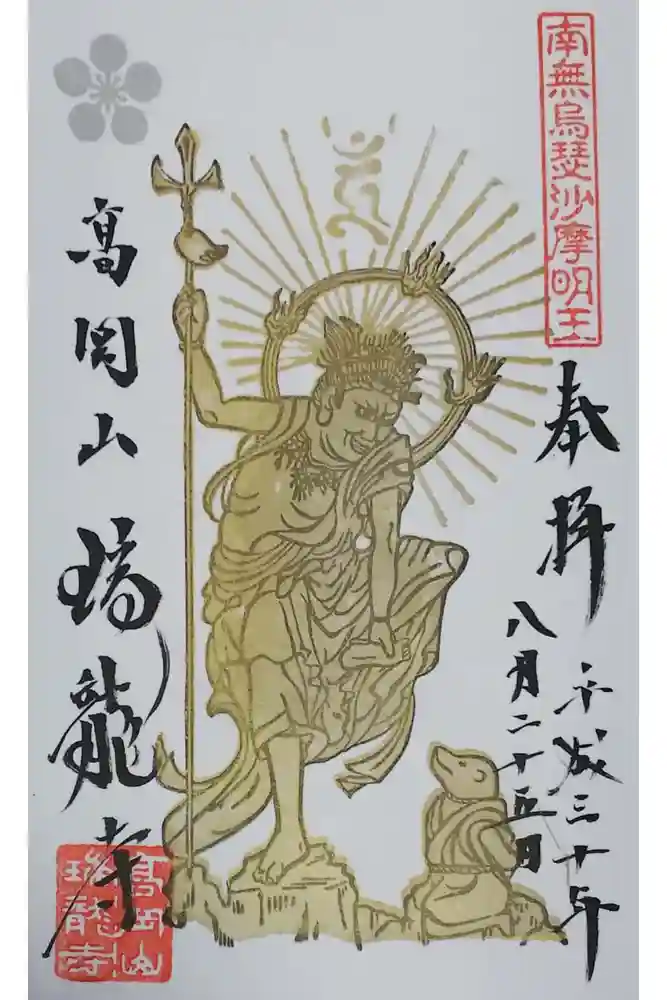 南無烏瑟沙摩明王
奉拝
平成三十年
八月二十五日
高岡山
瑞龍寺
高岡山
瑞龍寺